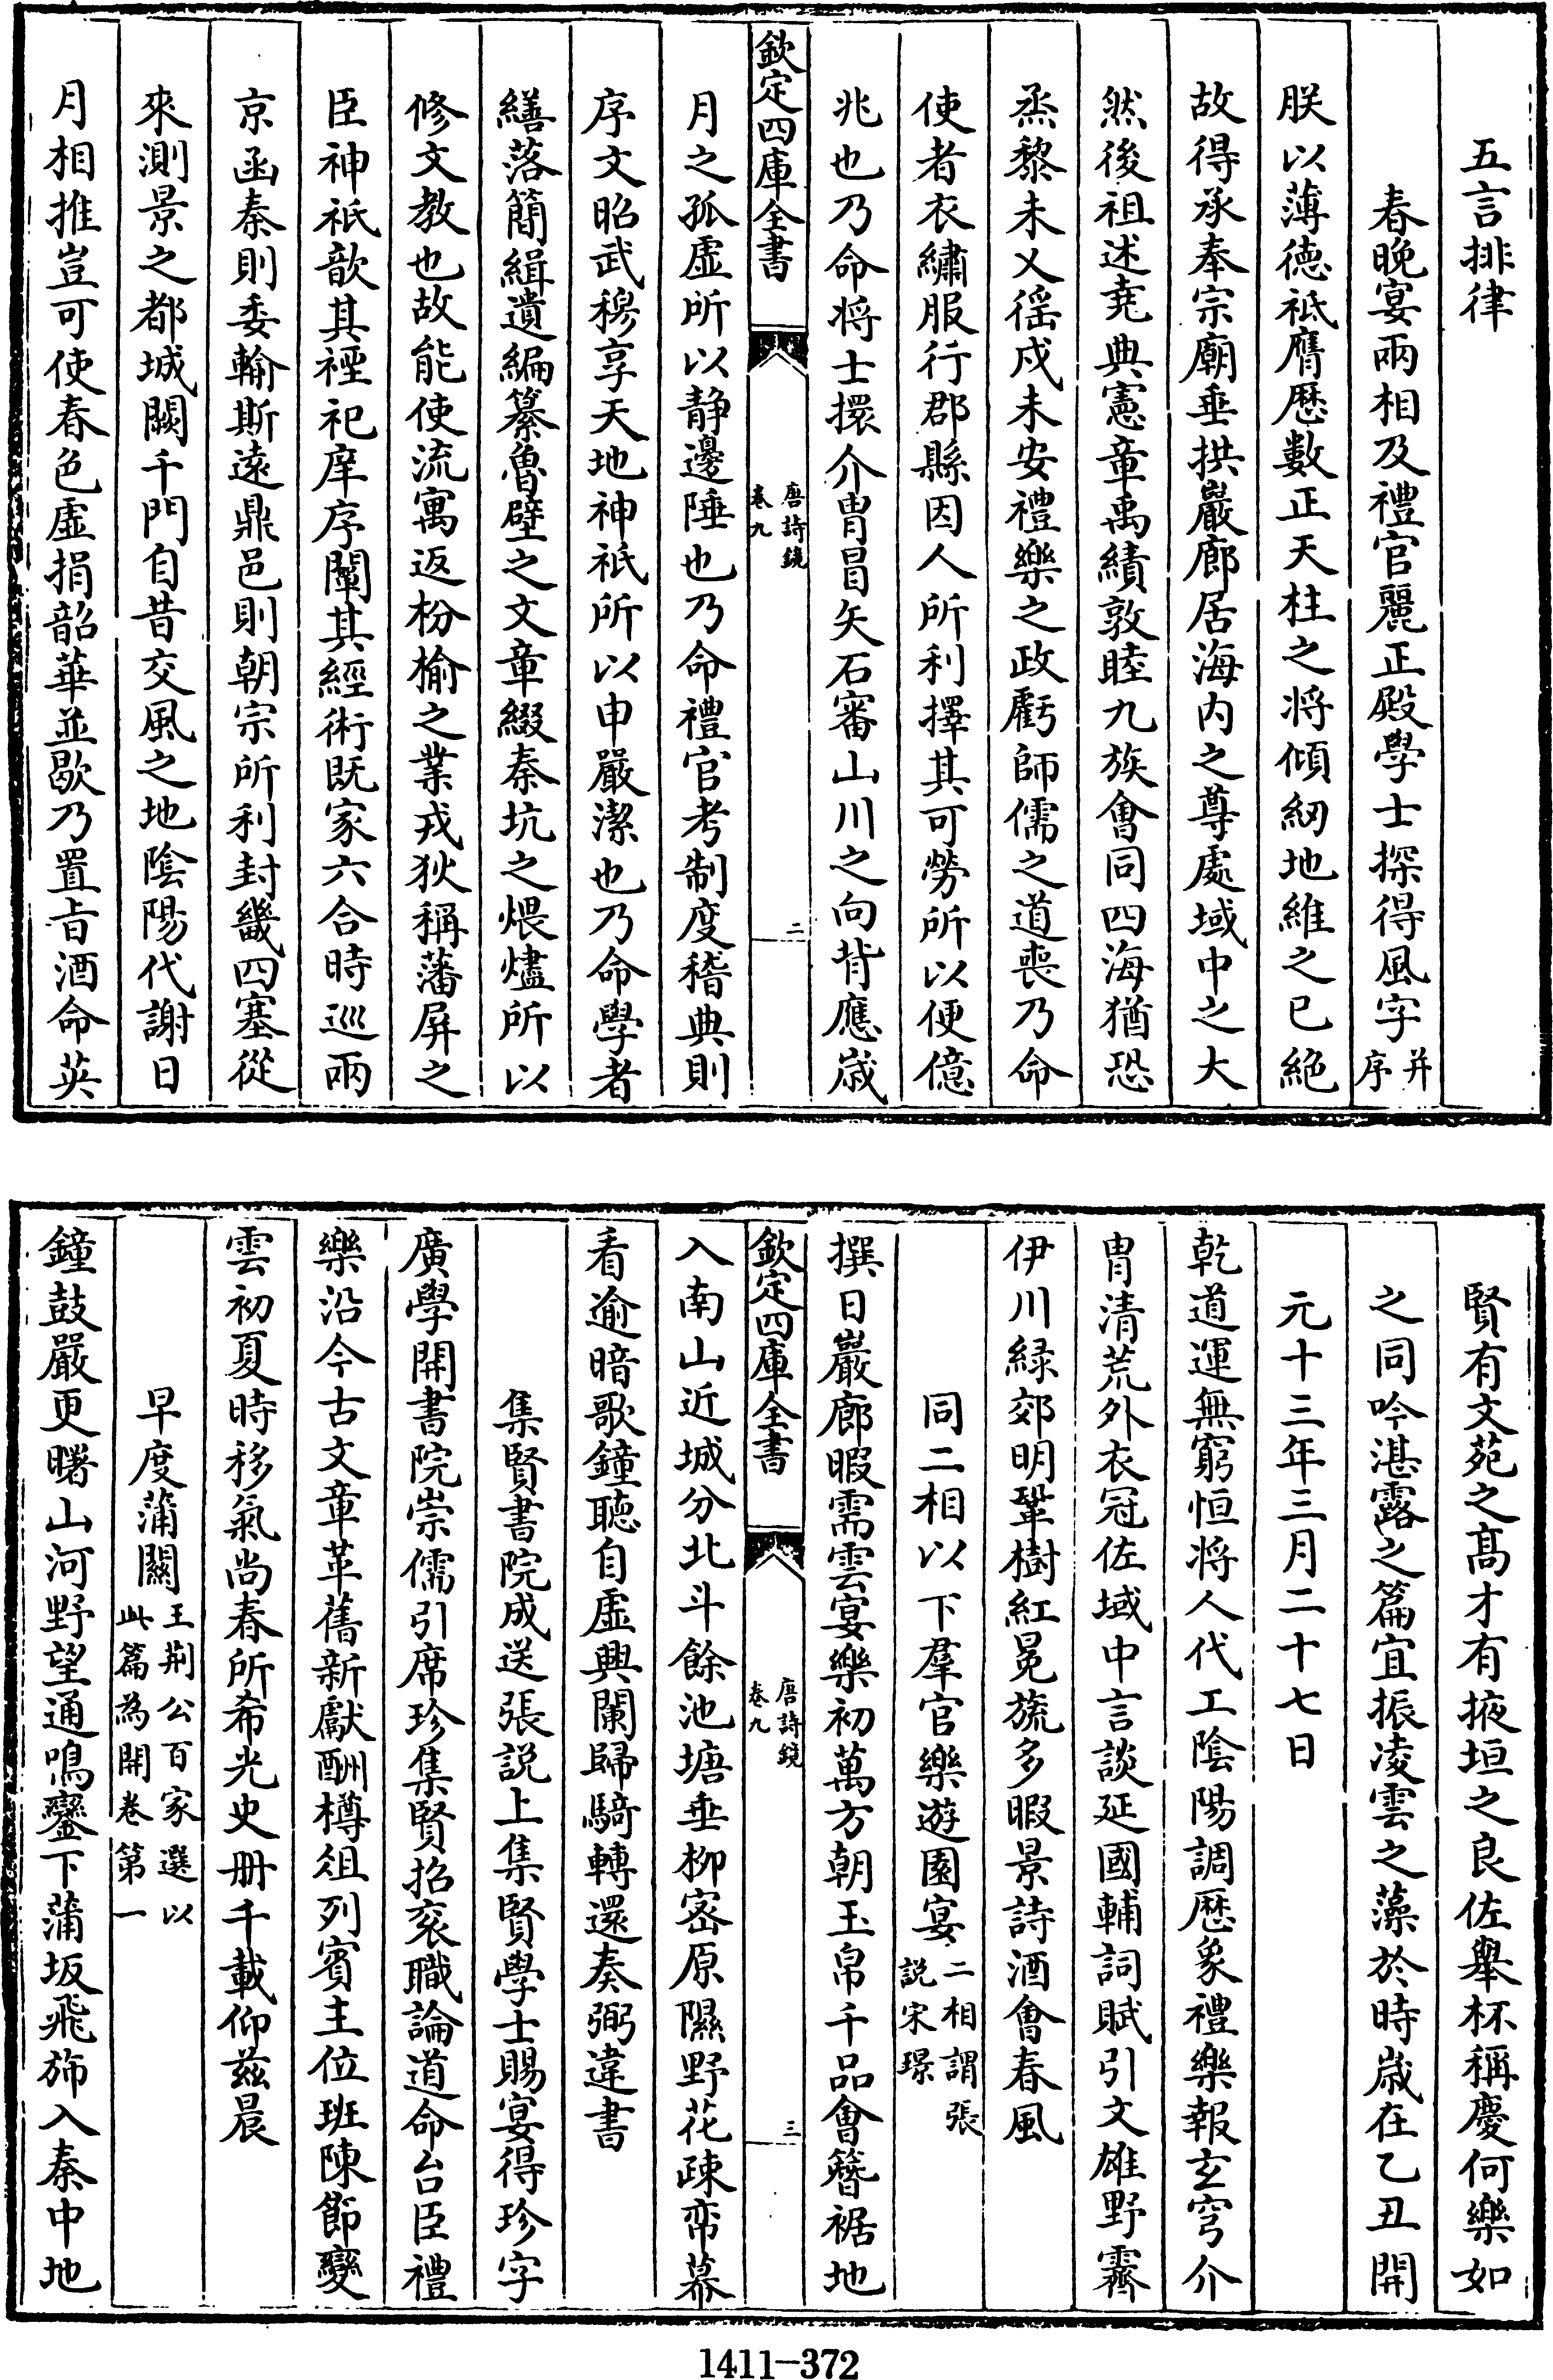 五言排律
春晚宴兩相及禮官麗正殿學士探得風字并序
朕以薄德祗膺歷數正天柱之将傾紉地維之已絶
故得承奉宗廟垂拱巖廊居海内之尊處域中之大
然後祖述堯典憲章禹績敦睦九族會同四海猶恐
烝黎未乂徭戍未安禮樂之政虧師儒之道喪乃命
使者衣繡服行郡縣因人所利擇其可勞所以便億
兆也乃命将士擐介胄冒矢石審山川之向背應歲
欽定四庫全書
唐詩鏡
卷九
二
月之孤虚所以静邊陲也乃命禮官考制度稽典則
序文昭武穆享天地神祇所以申嚴潔也乃命學者
繕落簡緝遺編纂魯壁之文章綴秦坑之煨燼所以
修文教也故能使流寓返枌榆之業戎狄稱藩屏之
臣神祇歆其禋祀庠序闡其經術既家六合時巡兩
京函秦則委輸斯遠鼎邑則朝宗所利封畿四塞從
來測景之都城闕千門自昔交風之地陰陽代謝日
月相推豈可使春色虚捐韶華並歇乃置旨酒命英
賢有文苑之髙才有掖垣之良佐舉杯稱慶何樂如
之同吟湛露之篇宜振凌雲之藻於時歲在乙丑開
元十三年三月二十七日
乾道運無窮恒将人代工陰陽調歴象禮樂報玄穹介
胄清荒外衣冠佐域中言談延國輔詞賦引文雄野霽
伊川緑郊明鞏樹紅冕旒多暇景詩酒會春風
同二相以下羣官樂遊園宴二相謂張説宋璟
撰日巖廊暇需雲宴樂初萬方朝玉帛千品會簪裾地
欽定四庫全書
唐詩鏡
卷九
三
入南山近城分北斗餘池塘垂柳密原隰野花疎帟幕
看逾暗歌鐘聽自虚興闌歸騎轉還奏弼違書
集賢書院成送張説上集賢學士賜宴得珍字
廣學開書院崇儒引席珍集賢招衮職論道命台臣禮
樂沿今古文章革舊新獻酬樽俎列賓主位班陳節變
雲初夏時移氣尚春所希光史册千載仰兹晨
早度蒲關王荆公百家選以此篇為開卷第一
鐘鼓嚴更曙山河野望通鳴鑾下蒲坂飛斾入秦中地
1411-372